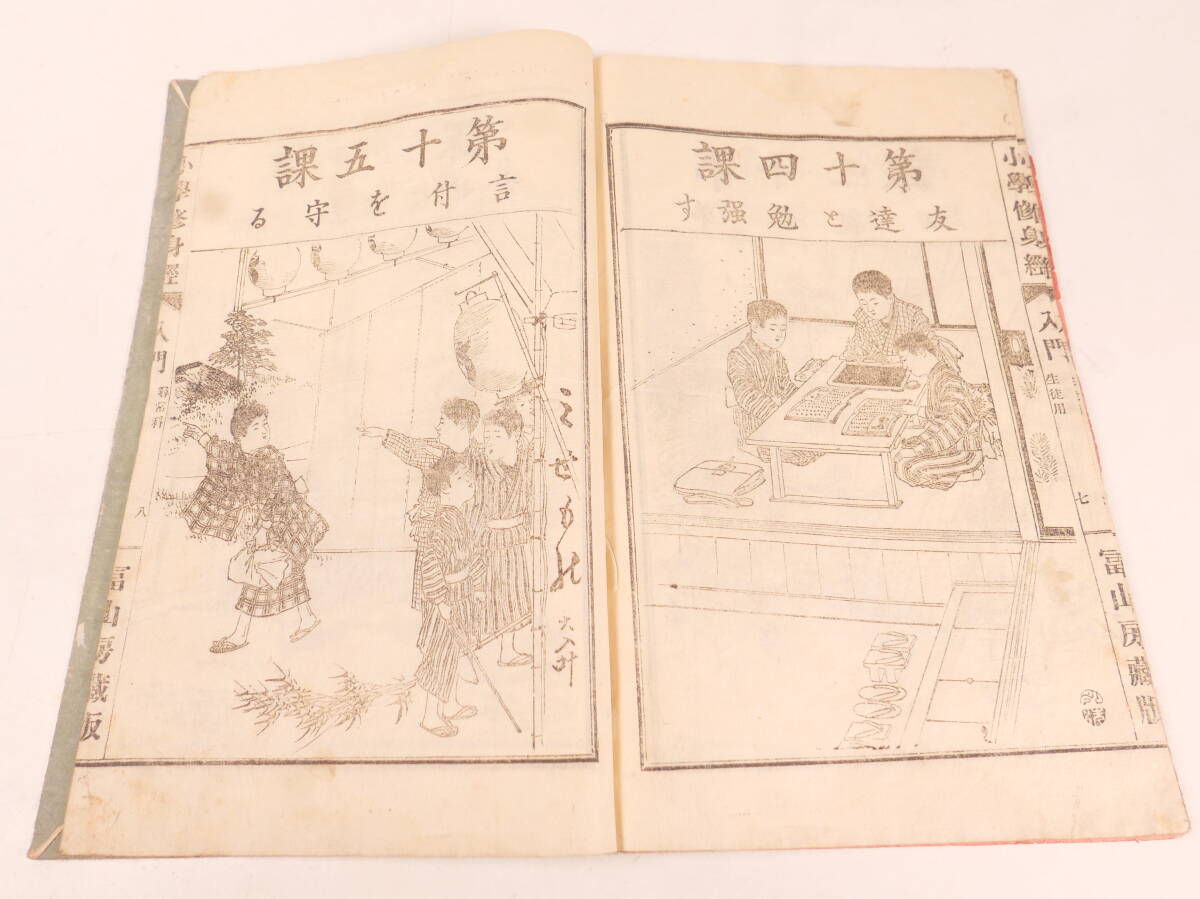 第十四課
友達と勉强す
小學修身經
入門
生徒用
七
冨山房藏版
第十五課
言付を守る
みせもの
大入叶
小學修身經
入門
尋常科
八
冨山房藏版